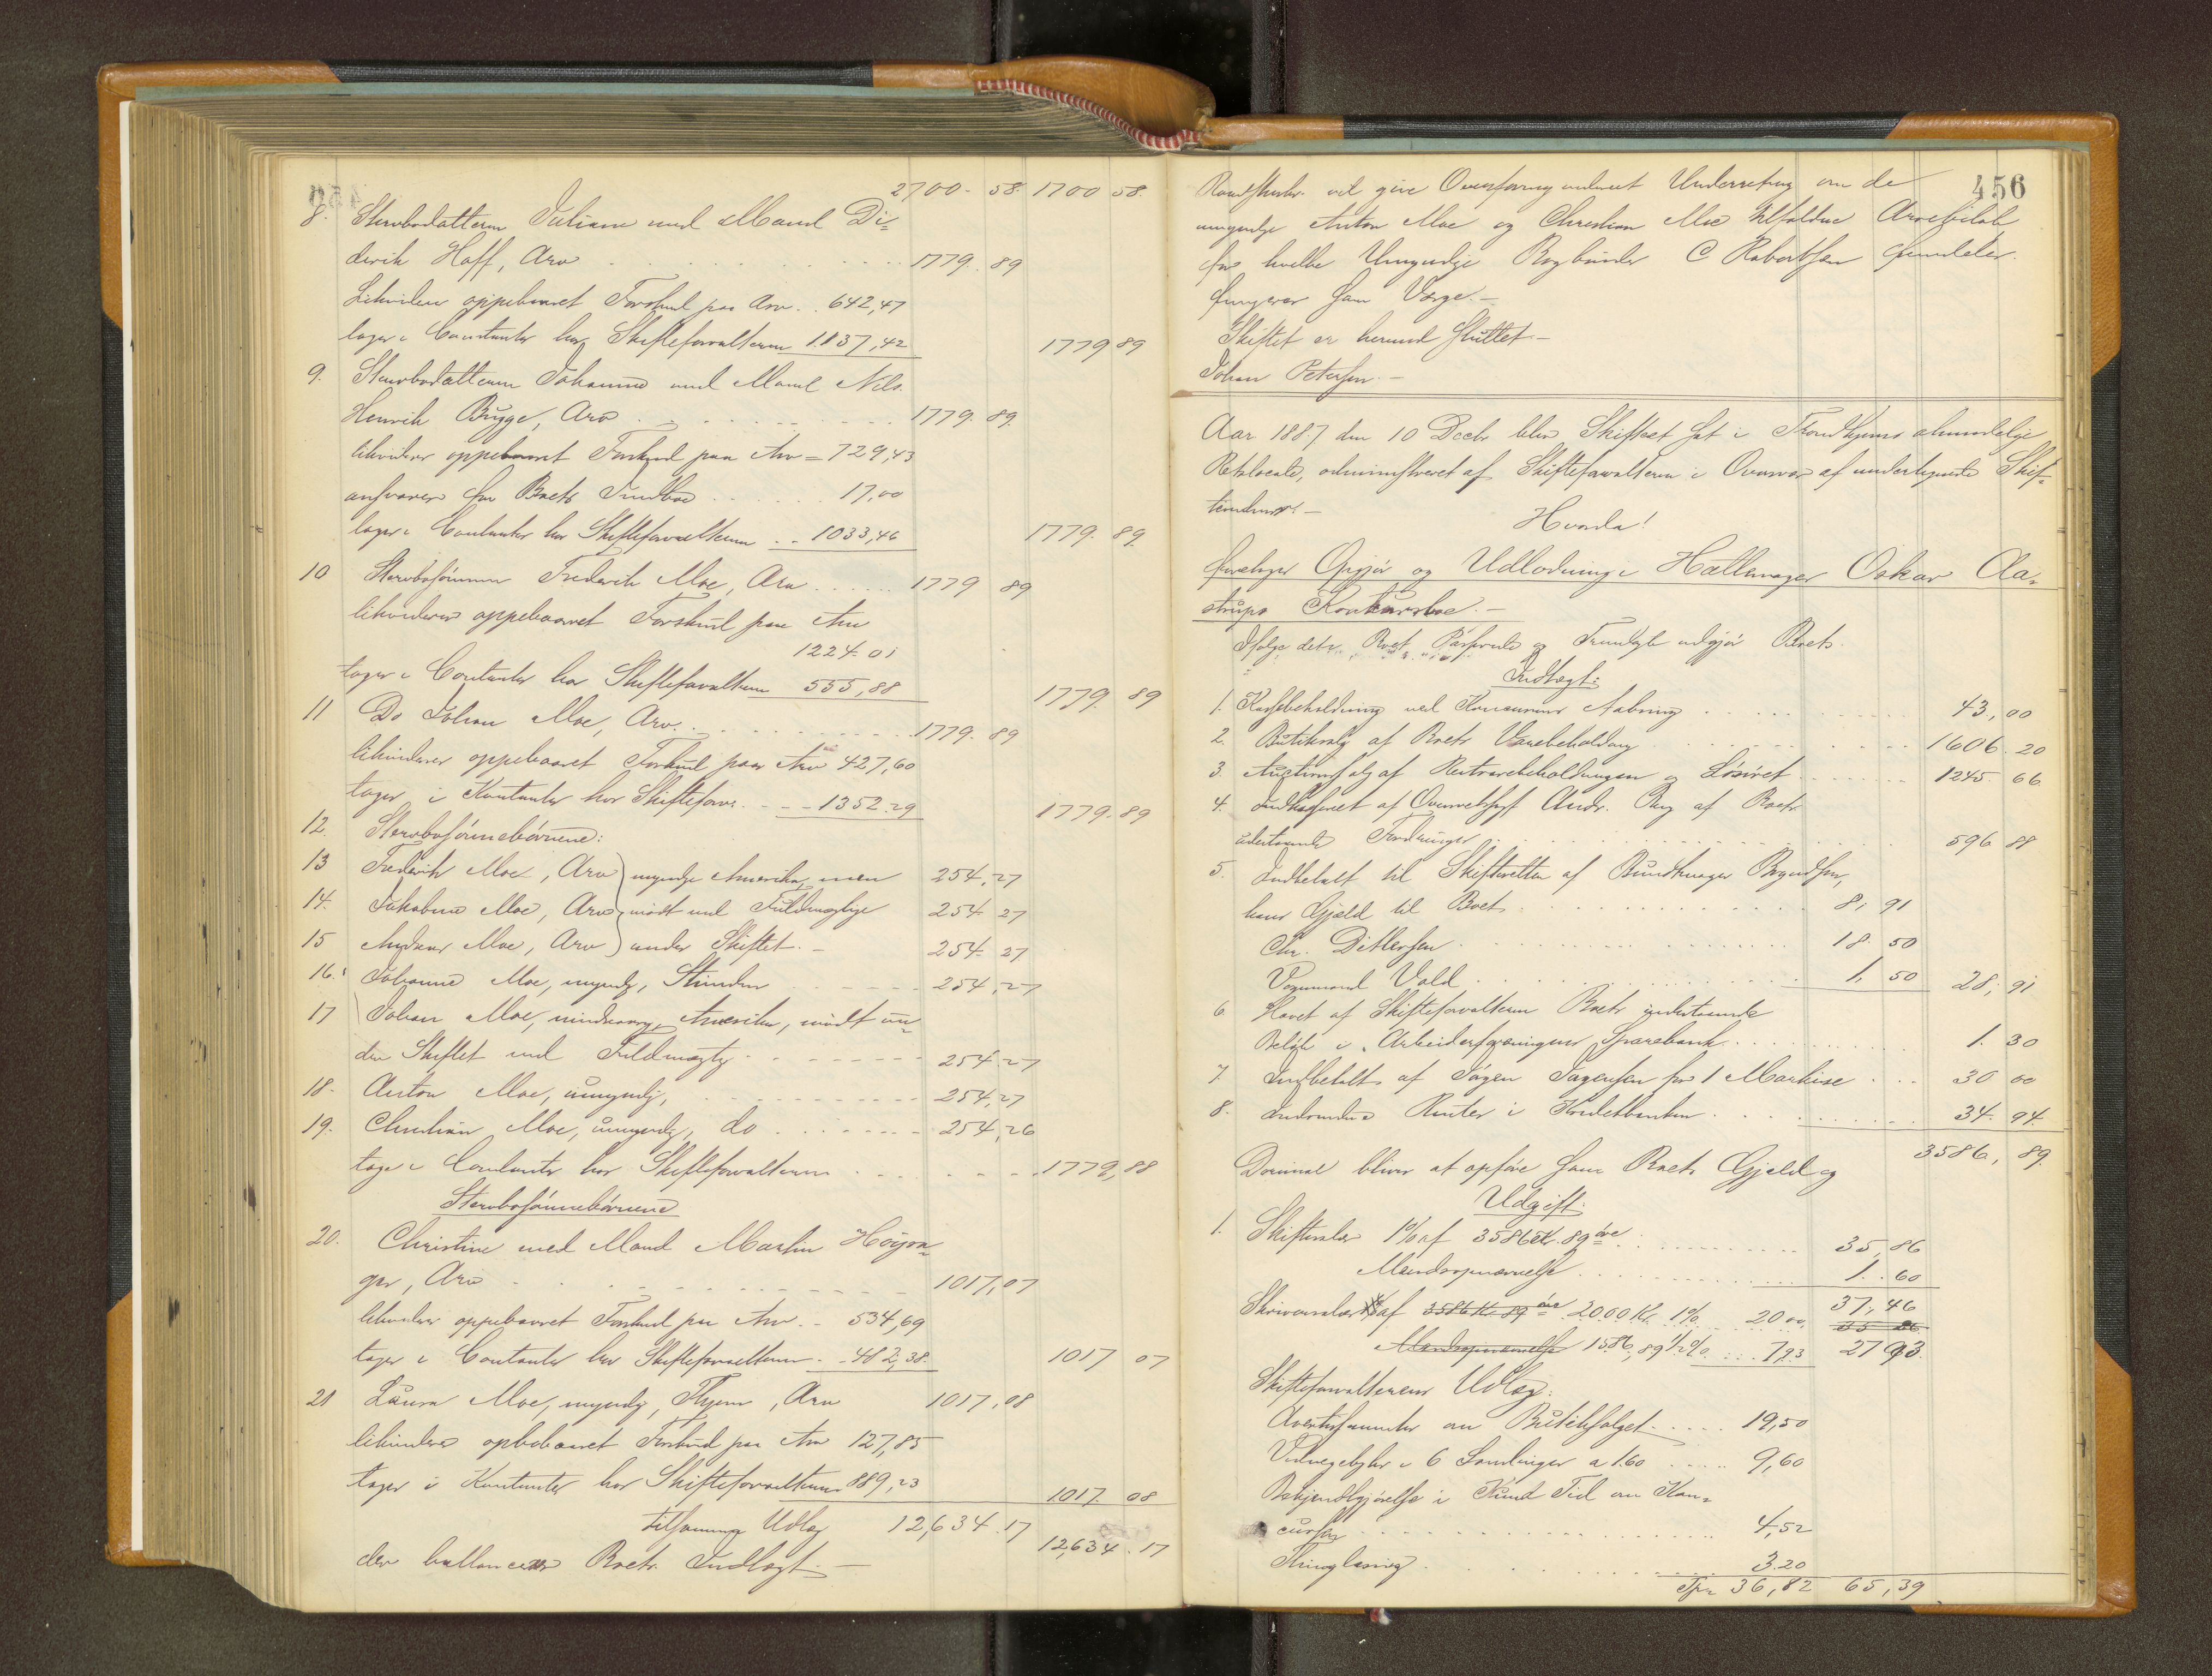 2700. 58. 1700 58.
8. Stervbodatteren Juliane med Mand Di=
derik Hoff, Arv 1779. 89
Likviderer oppebaaret Forskud paa Arv 642,47
tager i Contanter hos Skifteforvalteren 1137,42 1779 89
9. Stervbodatteren Johanne med Mand Nils
Henrik Bugge, Arv 1779. 89.
likviderer oppebaaret Forskud paa Arv = 729,43
ansvarer for Boets Indbo 17,00
tager i Contanter hos Skifteforvalteren 1033,46 1779. 89.
10 Stervbosønnen Frederik Moe, Arv 1779 89
likviderer oppebaaret Forskud paa Arv
1224. 01
tager i Contanter hos Skifteforvalteren 555,88 1779. 89
11 Do Johan Moe, Arv 1779. 89
likviderer oppebaaret Forskud paa Arv 427,60
tager i Kontanter hos Skifteforv. 1352.29 1779. 89
12. Stervbosønnebørnene:
13 Frederik Moe, Arv myndge Amerika, men 254,27
14. Jakobine Moe, Arv mødt med Fuldmægtige 254 27
15 Moe, Arv under Skiftet. 254. 27
16. Johanne Moe, myndg, 254,27
17 Johan Moe, mindreaarg, Amerika, mødt un=
der Skiftet ved Fuldmægtg 254.27
18. Anton Moe, umyndg, 254,27
19. Christian Moe, umyndg, do 254,26
tager i Contanter hos Skifteforvalteren 1779,88
Stervbosønnebørnene
20. Christine med Mand Martin
ger, Arv 1017,07
likviderer oppebaaret Forskud paa Arv 534,69
tager i Contanter hos Skifteforvalteren 482,38. 1017 07
21 Laura Moe, myndg, Thjem, Arv 1017,08
likviderer opbebaaret Forskud paa Arv 127,85
tager i Kontanter hos Skifteforvalteren 889,23 1017. 08
tilsammen Udlæg 12,634.17 12,634.17
der ballancerer Boets Indtægt.
456
vil give Overformynderiet Underretning om de
umyndge Anton Moe og Christian Moe tilfaldne Arvebeløb
for hvilke Umyndige Bogbinder C Robertsen fremdeles
fungerer som Værge.
Skiftet er hermed sluttet
Johan Petersen.
Aar 1887 den 10 Decbr blev Skifteret sat i Trondhjems almindelige
Retslocale, administreret af Skifteforvalteren i Overvær af undertegnede Skif=
tevidner.
Hvorda!
foretoges Opgjør og Udlodning i Oskar Aa=
strups Konkursbo.
Ifølge det i Boet Passerede og Fremlagte udgjør Boets
Indtægt:
1. Kassebeholdning ved Koncursens Aabning 43,00
2. Butiksalg af Boets Varebeholdning 1606. 20
3. Auctionsalg af Restvarebeholdningen og Løsøret 1245. 66
4. Indkasseret af Overretssagf. Andr. Bug af Boets
udestaaende Fordringer 596 88
5. Indbetalt til Skifteretten af
hans Gjæld til Boet 8, 91
Chr. Ditlefsen 18. 50
Vognmand Vold 1, 50 28, 91
6 Hævet af Skifteforvalteren Boets indestaaende
Beløb i Arbeiderforeningens Sparebank 1. 30
7. Indbetalt af for 1 Markise 30 00
8. Indvundne Renter i Kreditbanken 34. 94.
3586, 89.
Derimod bliver at opføre som Boets Gjeld og
Udgift.
1. Skifteslær 1% af 3586 Kr. 89 øre 35,86
Mandsopnævnelse 1. 60
37,46
Skriverslær af 3586 Kr 89 øre 2000 Kr. 1% 20 00. 35 86
Mandsopnævnelse 1586,89 ½% 7,93 27 93
Skifteforvalterens Udlæg:
Avertissementer om Butiksalget 19,50
i 6 Samlinger a 1.60 9,60
Bekjendtgjørelse i Kund Tid om Kon=
curs 4,52
Thinglæsning 3.20
Tpr 36,82 65,39